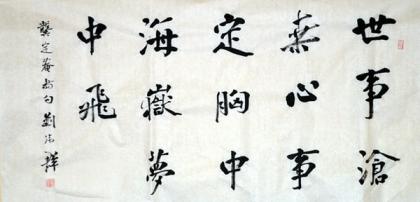 世事滄
桑心事
定胸中
海嶽夢
中飛
龔定菴句劉